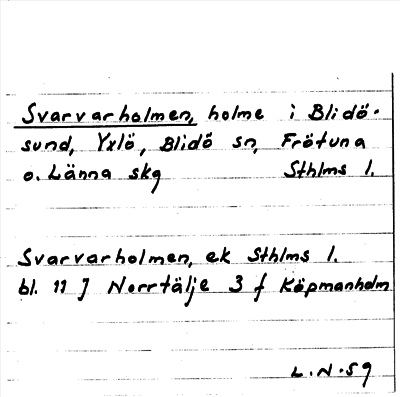 Svarvarholmen, holme i Blidö-
sund, Yxlö, Blidö sn, Frötuna
o. Länna skg Sthlms l.
Svarvarholmen, ek Sthlms l.
bl. 11 J Norrtälje 3 f Köpmanholm
L.N.59